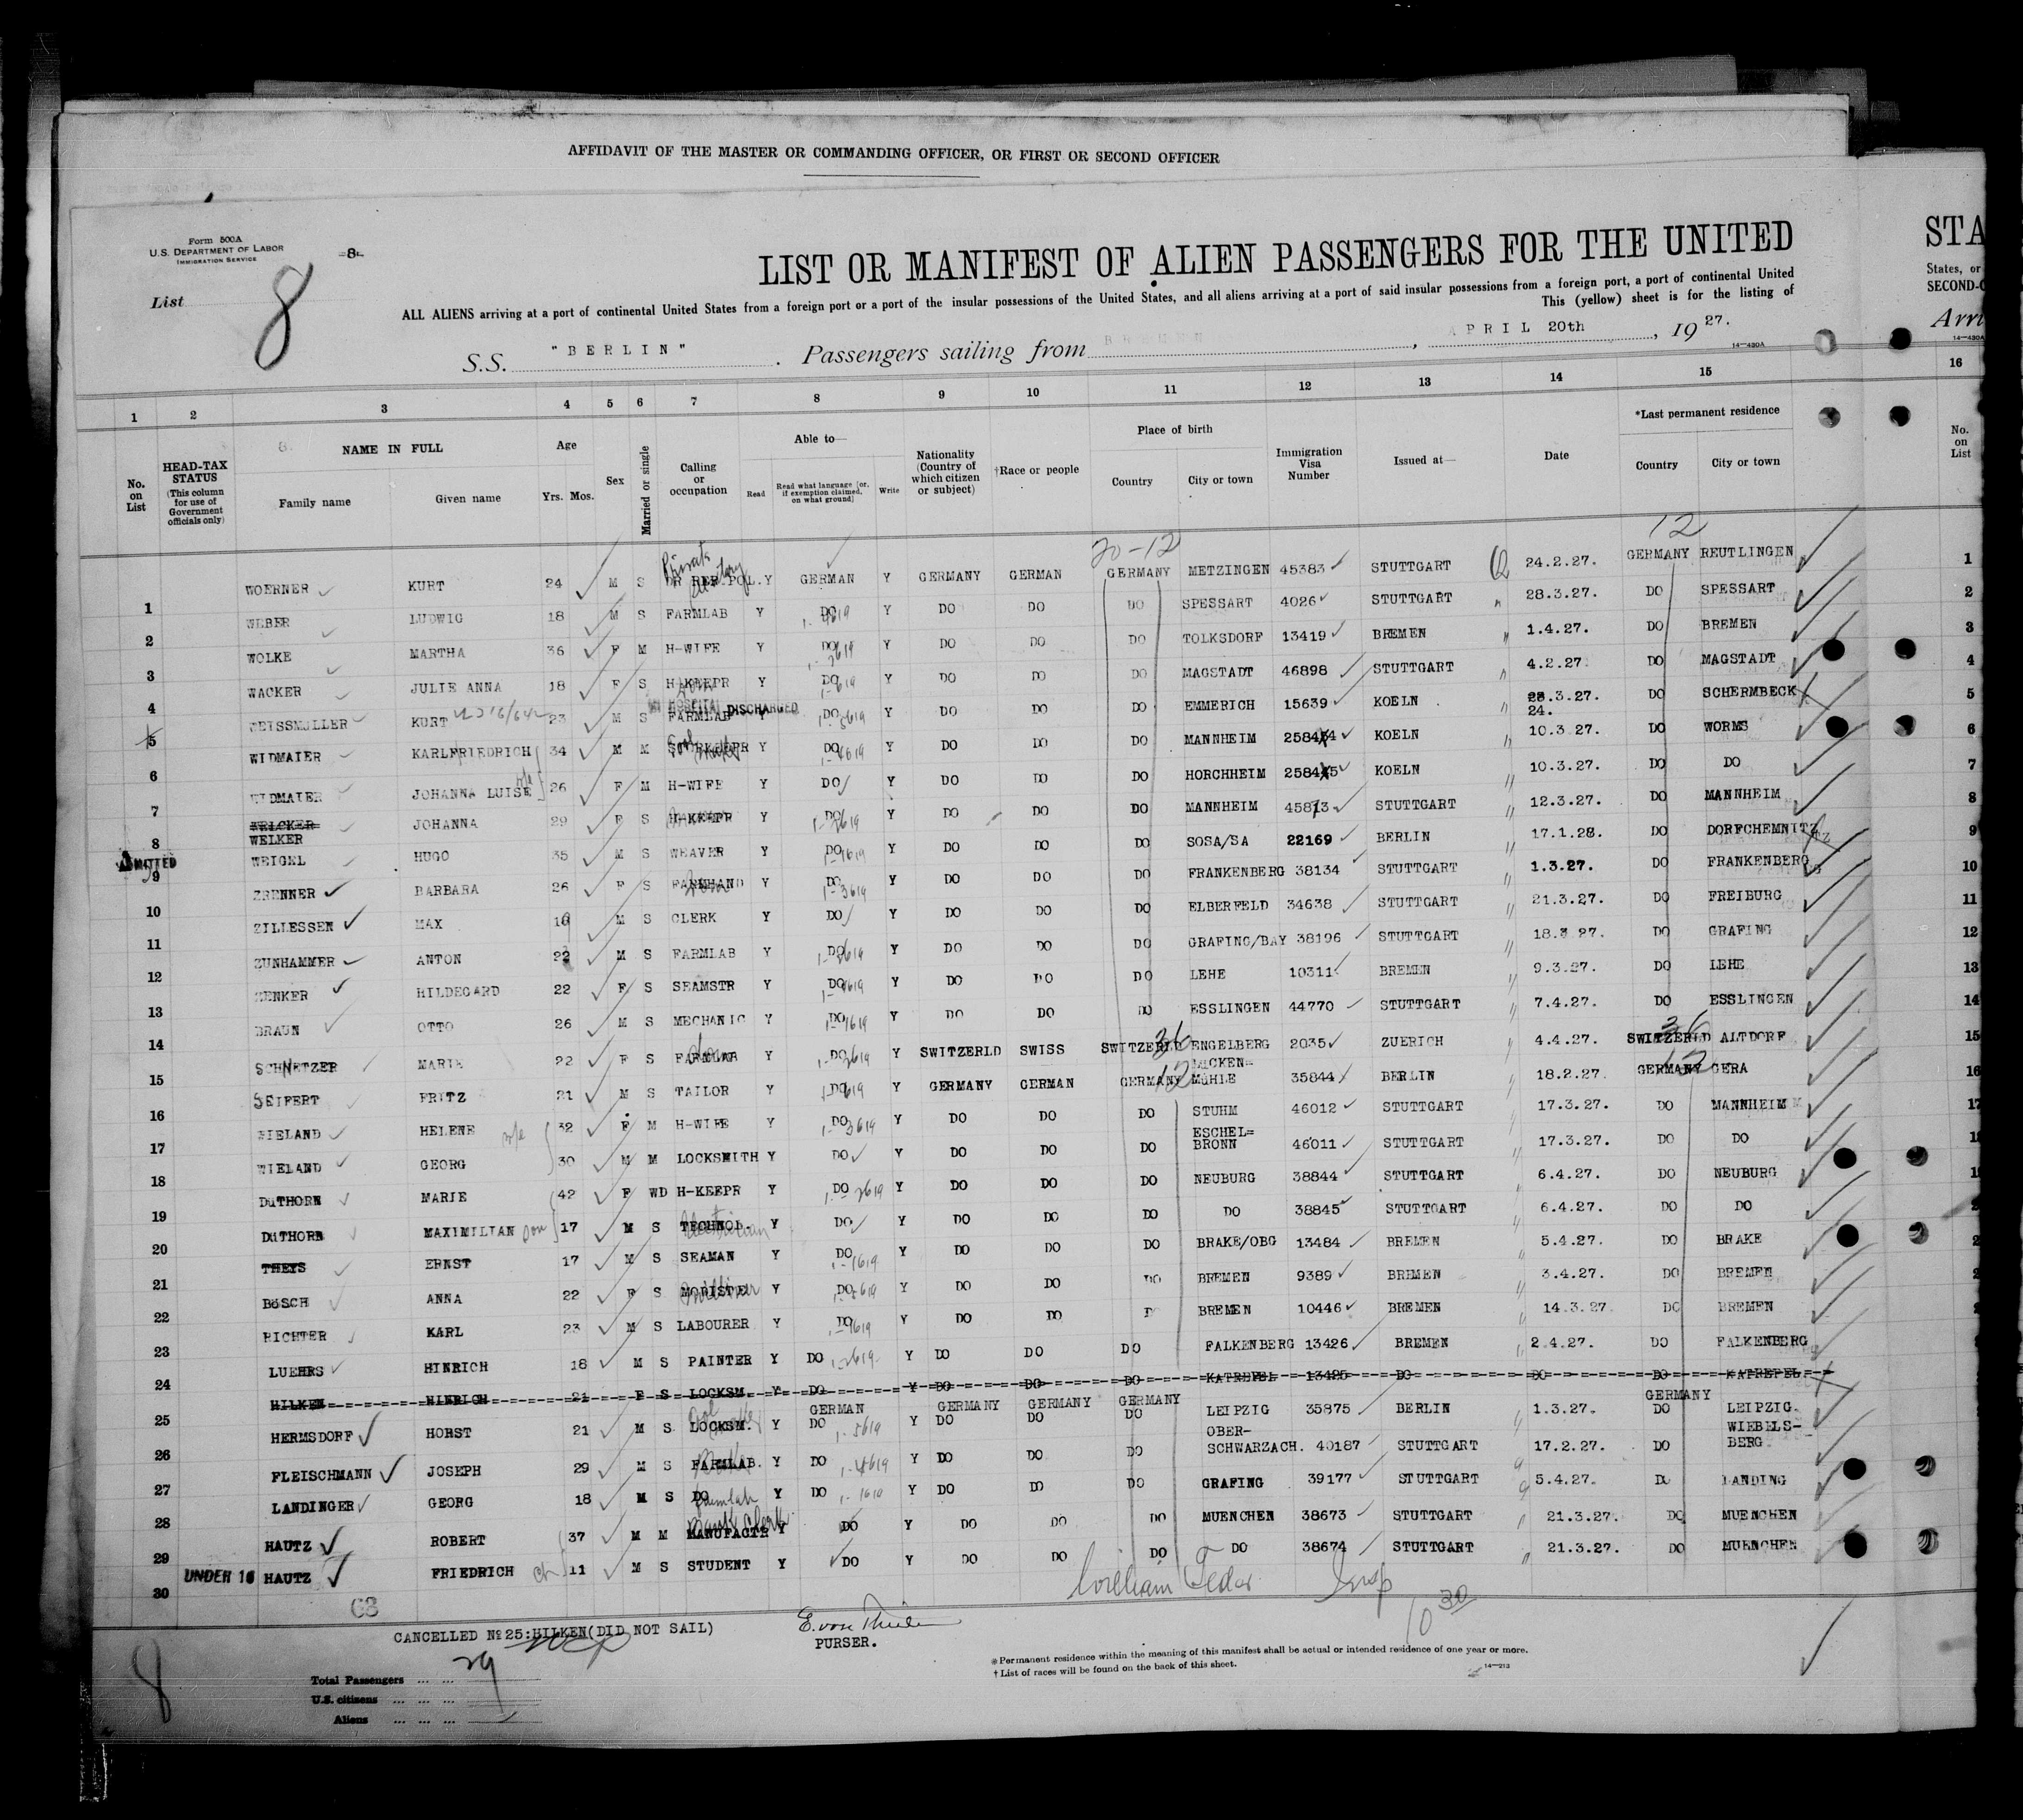 AFFIDAVIT OF THE MASTER OR COMMANDING OFFICER, OR FIRST OR SECOND OFFICER
Form 500A
U.S. DEPARTMENT OF LABOR
IMMIGRATION SERVICE
-8-
List 8
LIST OR MANIFEST OF ALIEN PASSENGERS FOR THE UNITED
STA
ALL ALIENS arriving at a port of continental United States from a foreign port or a port of the insular possessions of the United States, and all aliens arriving at a port of said insular possessions from a foreign port, a port of continental United
States, or
This (yellow) sheet is for the listing of
SECOND-C
S.S. "BERLIN". Passengers sailing from BREMEN, APRIL 20th, 1927.
Arri
14—430A
14—430A
1 2 3 4 5 6 7 8 9 10 11 12 13 14 15 16
No. on List
HEAD-TAX STATUS (This column for use of Government officials only)
NAME IN FULL
Family name Given name
Age
Yrs. Mos.
Sex
Married or single
Calling or occupation
Able to—
Read
Read what language [or, if exemption claimed, on what ground]
Write
Nationality (Country of which citizen or subject)
†Race or people
Place of birth
Country City or town
Immigration Visa Number
Issued at—
Date
*Last permanent residence
Country City or town
No. on List
20-12 12
1 WOERNER KURT 24 M S DR RER POL. Y GERMAN Y GERMANY GERMAN GERMANY METZINGEN 45383 STUTTGART 24.2.27. GERMANY REUTLINGEN 1
2 WEBER LUDWIG 18 M S FARMLAB Y DO Y DO DO DO SPESSART 4026 STUTTGART 28.3.27. DO SPESSART 2
3 WOLKE MARTHA 36 F M H-WIFE Y DO Y DO DO DO TOLKSDORF 13419 BREMEN 1.4.27. DO BREMEN 3
4 WACKER JULIE ANNA 18 F S H-KEEPR Y DO Y DO DO DO MAGSTADT 46898 STUTTGART 4.2.27. DO MAGSTADT 4
IN HOSPITAL DISCHARGED
5 WEISSMULLER KURT 23 M S FARMLAB Y DO Y DO DO DO EMMERICH 15639 KOELN 24.3.27. DO SCHERMBECK 5
6 WIDMAIER KARLFRIEDRICH 34 M M STORKEEPR Y DO Y DO DO DO MANNHEIM 25844 KOELN 10.3.27. DO WORMS 6
7 WIDMAIER JOHANNA LUISE 26 F M H-WIFE Y DO Y DO DO DO HORCHHEIM 25845 KOELN 10.3.27. DO DO 7
8 WELKER JOHANNA 29 F S H-KEEPR Y DO Y DO DO DO MANNHEIM 45813 STUTTGART 12.3.27. DO MANNHEIM 8
ADMITTED
9 WEIGEL HUGO 35 M S WEAVER Y DO Y DO DO DO SOSA/SA 22169 BERLIN 17.1.28. DO DORFCHEMNITZ 9
10 ZRENNER BARBARA 26 F S FARMHAND Y DO Y DO DO DO FRANKENBERG 38134 STUTTGART 1.3.27. DO FRANKENBERG 10
11 ZILLESSEN MAX 18 M S CLERK Y DO Y DO DO DO ELBERFELD 34638 STUTTGART 21.3.27. DO FREIBURG 11
12 ZUNHAMMER ANTON 22 M S FARMLAB Y DO Y DO DO DO GRAFING/BAY 38196 STUTTGART 18.3.27. DO GRAFING 12
13 ZENKER HILDEGARD 22 F S SEAMSTR Y DO Y DO DO DO LEHE 10311 BREMEN 9.3.27. DO LEHE 13
14 BRAUN OTTO 26 M S MECHANIC Y DO Y DO DO DO ESSLINGEN 44770 STUTTGART 7.4.27. DO ESSLINGEN 14
15 SCHNETZER MARIE 22 F S FARMLAB Y DO Y SWITZERLD SWISS SWITZERLD ENGELBERG 2035 ZUERICH 4.4.27. SWITZERLD ALTDORF 15
16 SEIFERT FRITZ 21 M S TAILOR Y DO Y GERMANY GERMAN GERMANY MUHLE 35844 BERLIN 18.2.27. GERMANY GERA 16
17 WIELAND HELENE 32 F M H-WIFE Y DO Y DO DO DO STUHM 46012 STUTTGART 17.3.27. DO MANNHEIM 17
18 WIELAND GEORG 30 M M LOCKSMITH Y DO Y DO DO DO ESCHEL=BRONN 46011 STUTTGART 17.3.27. DO DO
19 DüTHORN MARIE 42 F WD H-KEEPR Y DO Y DO DO DO NEUBURG 38844 STUTTGART 6.4.27. DO NEUBURG
20 DüTHORN MAXIMILIAN son 17 M S TECHNOL. Y DO Y DO DO DO DO 38845 STUTTGART 6.4.27. DO DO
21 THEYS ERNST 17 M S SEAMAN Y DO Y DO DO DO BRAKE/OBG 13484 BREMEN 5.4.27. DO BRAKE
22 BöSCH ANNA 22 F S MODISTE Y DO Y DO DO DO BREMEN 9389 BREMEN 3.4.27. DO BREMEN
23 RICHTER KARL 23 M S LABOURER Y DO Y DO DO DO BREMEN 10446 BREMEN 14.3.27. DO BREMEN
24 LUEHRS HINRICH 18 M S PAINTER Y DO Y DO DO DO FALKENBERG 13426 BREMEN 2.4.27. DO FALKENBERG
25 HILKEN HINRICH 21 F S LOCKSM. Y DO Y DO DO DO KATREPEL 13425 DO DO DO KATREPEL
GERMAN GERMANY GERMANY GERMANY GERMANY
26 HERMSDORF HORST 21 M S LOCKSM. Y DO Y DO DO DO LEIPZIG 35875 BERLIN 1.3.27. DO LEIPZIG.
27 FLEISCHMANN JOSEPH 29 M S FARMLAB. Y DO Y DO DO DO OBER-SCHWARZACH. 40187 STUTTGART 17.2.27. DO WIEBELS-BERG
28 LANDINGER GEORG 18 M S DO Y DO Y DO DO DO GRAFING 39177 STUTTGART 5.4.27. DO LANDING
29 HAUTZ ROBERT 37 M M MANUFACTR Y DO Y DO DO DO MUENCHEN 38673 STUTTGART 21.3.27. DO MUENCHEN
30 UNDER 16 HAUTZ FRIEDRICH 11 M S STUDENT Y DO Y DO DO DO DO 38674 STUTTGART 21.3.27. DO MUENCHEN
68
CANCELLED № 25:HILKEN(DID NOT SAIL)
PURSER.
10 30
*Permanent residence within the meaning of this manifest shall be actual or intended residence of one year or more.
†List of races will be found on the back of this sheet.
14—213
8
Total Passengers ... ... 29
U.S. citizens ... ... ...
Aliens ... ... ...